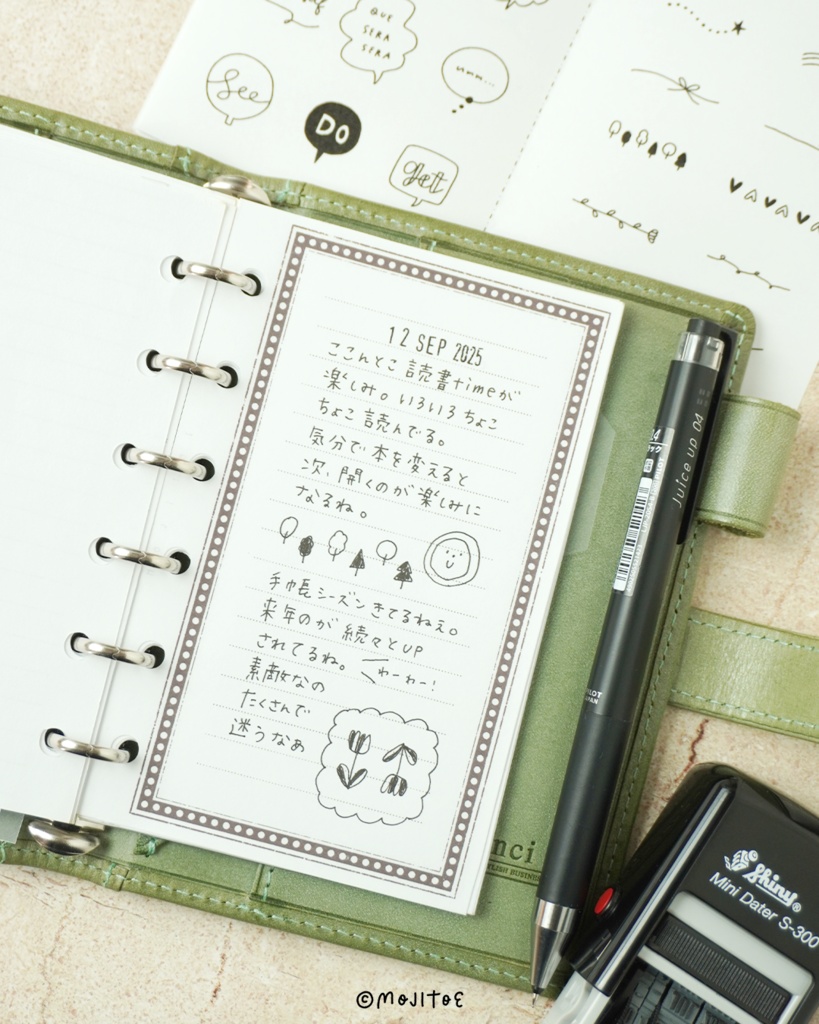 QUE
SERA
SERA
See
um...
DO
Get
12 SEP 2025
ここんとこ 読書timeが
楽しみ。いろいろちょこ
ちょこ 読んでる。
気分で 本を変えると
次、開くのが楽しみに
なるね。
手帳シーズン きてるねぇ。
来年のが 続々とUP
されてるね。 わーわー!
素敵なの
たくさんで
迷うなあ
Juice up 04
PILOT
JAPAN
nci
Shiny®
Mini Dater S-300
©MOJITOE